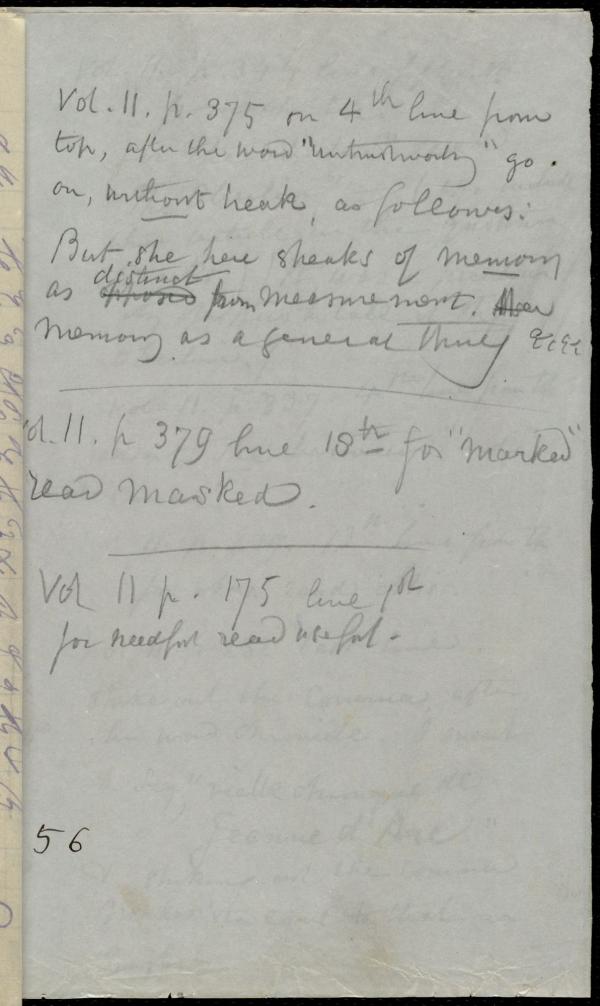 Vol. II. p. 375 on 4th line from
top, after the word "untrustworthy" go
on, without break, as follows:
But she here speaks of memory
distinct
as opposed from measurement.
memory as a general thing &c &c
Vol. II. p 379 line 18th for "marked"
read masked.
Vol II p. 175 line 1st
for needful read useful.
56